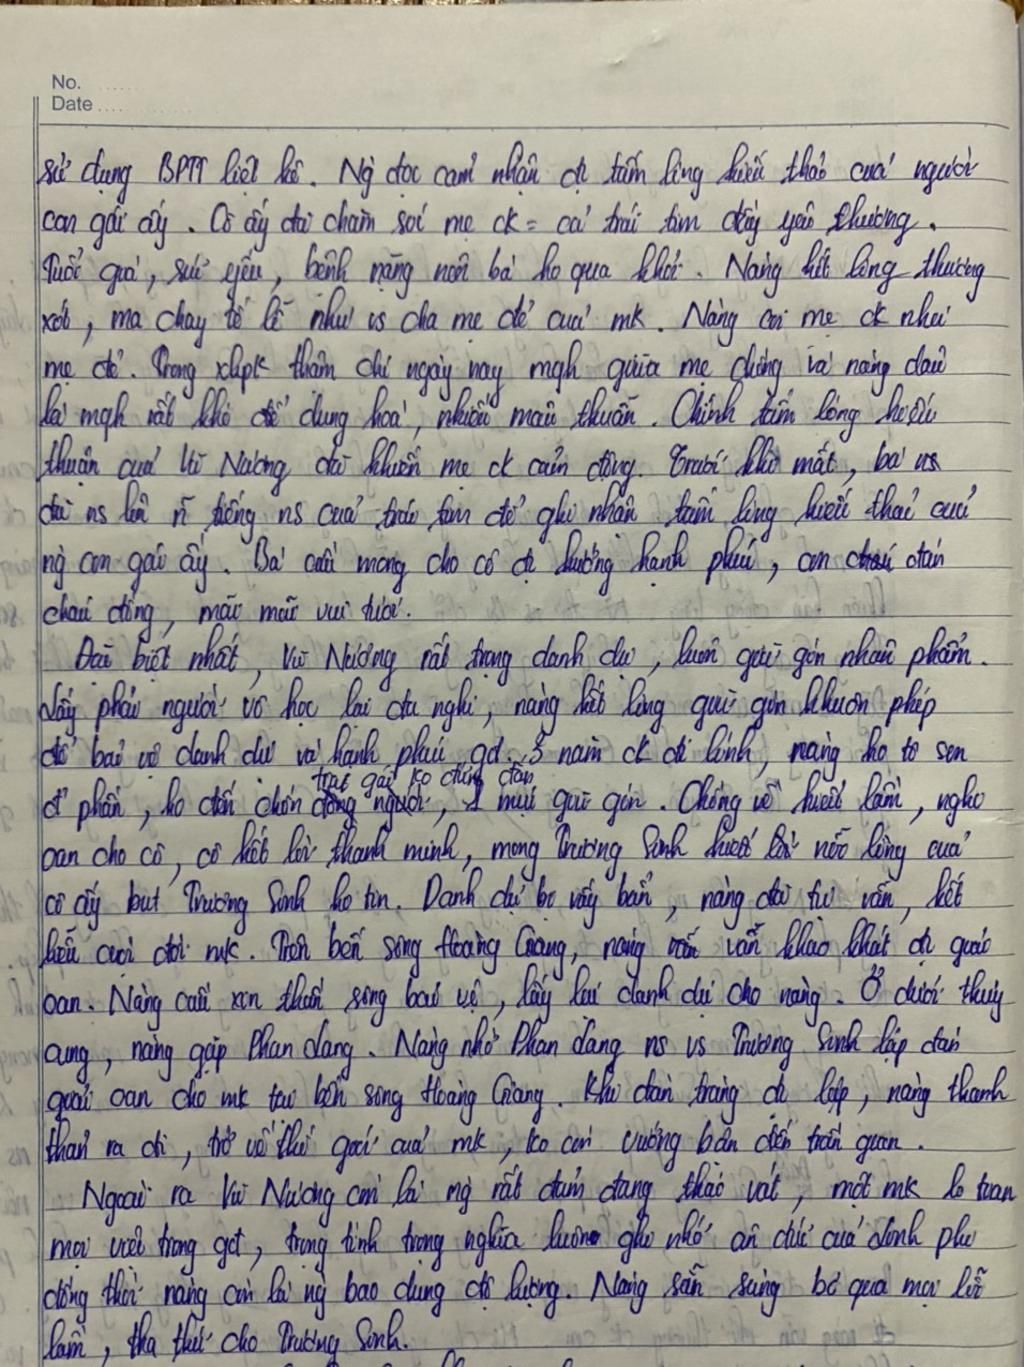 No.
Date
sử dụng BPTT liệt kê. Ng đọc cảm nhận đc tấm lòng hiếu thảo của người
con gái ấy. Cô ấy đã chăm sóc mẹ ck = cả trái tim đầy yêu thương.
Tuổi già, sức yếu, bệnh nặng nên bà ko qua khỏi. Nàng hết lòng thương
xót, ma chay tế lễ như vs cha mẹ đẻ của mk. Nàng coi mẹ ck như
mẹ đẻ. Trong xhpk thậm chí ngày nay mqh giữa mẹ chồng và nàng dâu
là mqh rất khó để dung hoà, nhiều mâu thuẫn. Chính tấm lòng hiếu
thuận của Vũ Nương đã khiến mẹ ck cảm động. Trước khi mất, bà
đã ns lên tiếng ns của trái tim để ghi nhận tấm lòng hiếu thảo của
ng con gái ấy. Bà cầu mong cho cô đc hưởng hạnh phúc, con cháu đàn
cháu đống, mãi mãi vui tươi.
Đặc biệt nhất, Vũ Nương rất trọng danh dự, luôn giữ gìn nhân phẩm.
Lấy phải người vô học lại đa nghi, nàng hết lòng giữ gìn khuôn phép
để bảo vệ danh dự và hạnh phúc gđ. 3 năm ck đi lính, nàng ko tô son
trai gái ko đứng đắn
điểm phấn, ko đến chốn đông người, 1 mực giữ gìn. Chồng về hiểu lầm, nghi
oan cho cô, cô hết lời thanh minh, mong Trương Sinh hiểu lời nỗi lòng của
cô ấy but Trương Sinh ko tin. Danh dự bị vấy bẩn, nàng đã tự vẫn, kết
liễu cuộc đời mk. Trên bến sông Hoàng Giang, nàng vẫn khao khát đc giải
oan. Nàng cầu xin thần sông bảo vệ, lấy lại danh dự cho nàng. Ở dưới thuỷ
cung, nàng gặp Phan Lang. Nàng nhờ Phan Lang ns vs Trương Sinh lập đàn
giải oan cho mk tại bến sông Hoàng Giang. Khi đàn tràng đc lập, nàng thanh
thản ra đi, trở về thế giới của mk, ko còn vướng bận đến trần gian.
Ngoài ra Vũ Nương còn là ng rất đảm đang tháo vát, một mk lo toan
mọi việc trong gđ, trọng tình trọng nghĩa luôn ghi nhớ ân đức của Linh phi
đồng thời nàng còn là ng bao dung độ lượng. Nàng sẵn sàng bỏ qua mọi lỗi
lầm, tha thứ cho Trương Sinh.